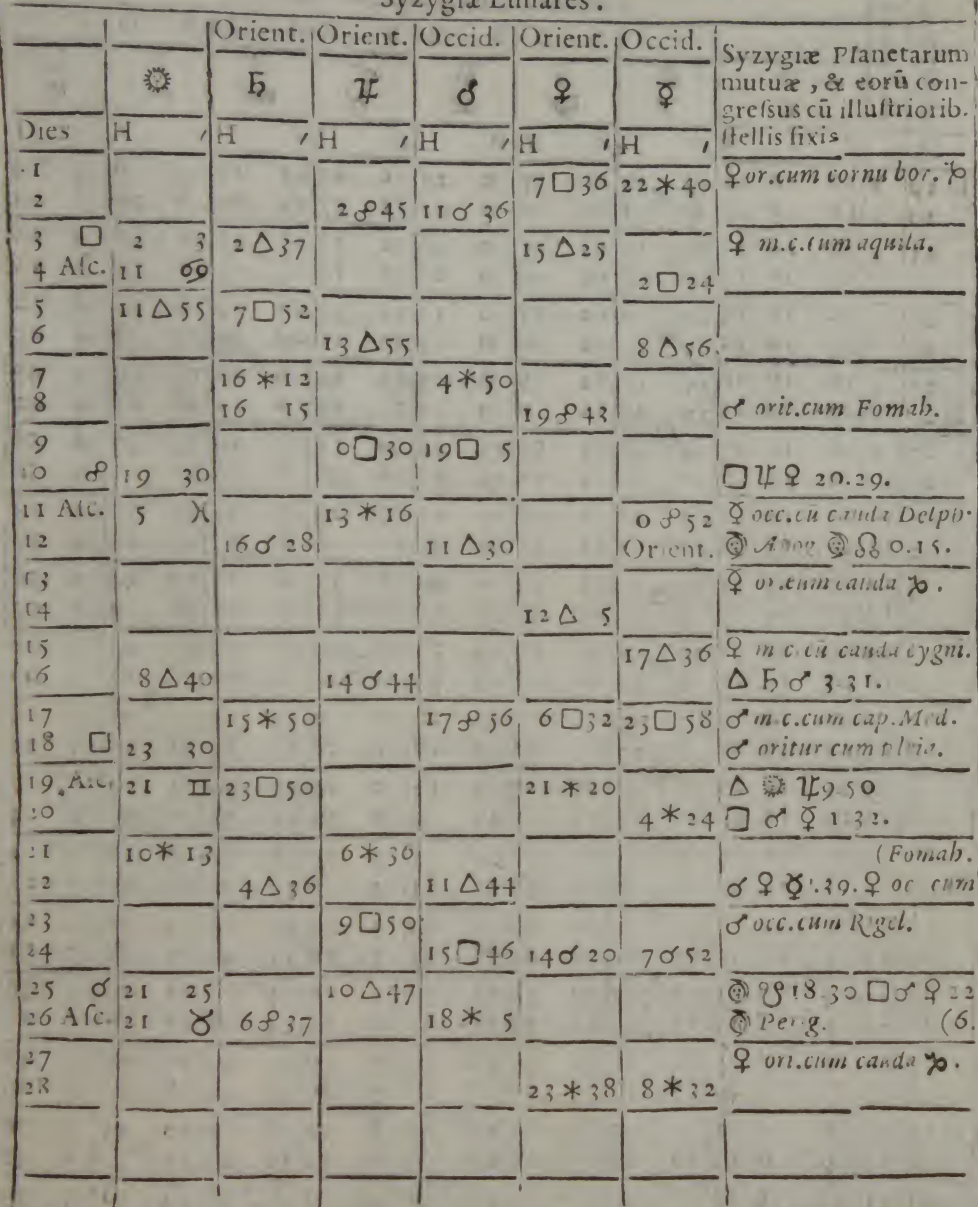 Syzygiæ Lunares.
Orient. Orient. Occid. Orient. Occid.
☼ ♄ ♃ ♂ ♀ ☿
Syzygiæ Planetarum
mutuæ, & eorū con-
gressus cū illustriorib.
stellis fixis
Dies H H ′ H ′ H ′ H ′ H ′
1 7 □ 36 22 ✶ 40 ♀ or.cum cornu bor. ♑
2 2 ☍ 45 11 ☌ 36
3 □ 2 3 2 △ 37 15 △ 25 ♀ m.c.cum aquila.
4 Asc. 11 ♋ 2 □ 24
5 11 △ 55 7 □ 52
6 13 △ 55 8 △ 56
7 16 ✶ 12 4 ✶ 50
8 16 15 19 ☍ 43 ♂ orit.cum Fomah.
9 0 □ 30 19 □ 5
10 ☍ 19 30 □ ♃ ♀ 20.29.
11 Asc. 5 ♓ 13 ✶ 16 0 ☍ 52 ☿ occ.cū cauda Delph.
12 16 ☌ 28 11 △ 30 Orient. ☊ 0.15.
13 cauda ♑.
14 12 △ 5
15 17 △ 36 ♀ m c.cū cauda cygni.
16 8 △ 40 14 ☌ 44 △ ♄ ♂ 3.31.
17 15 ✶ 50 17 ☍ 56 6 □ 32 23 □ 58 ♂ m.c.cum cap.Med.
18 □ 23 30 ♂ oritur cum
19 Asc. 21 ♊ 23 □ 50 21 ✶ 20 △ ☼ ♃ 9 50
20 4 ✶ 24 □ ♂ ☿ 1.32.
21 10 ✶ 13 6 ✶ 36 (Fomah.
22 4 △ 36 11 △ 44 ☌ ♀ ☿ .39. ♀ oc cum
23 9 □ 50 ♂ occ.cum Rigel.
24 15 □ 46 14 ☌ 20 7 ☌ 52
25 ☌ 21 25 10 △ 47 ☋ 18.30 □ ♂ ♀ 22
26 Asc. 21 ♉ 6 ☍ 37 18 ✶ 5 Perig. (6.
27 ♀ ori.cum cauda ♑.
28 23 ✶ 38 8 ✶ 32